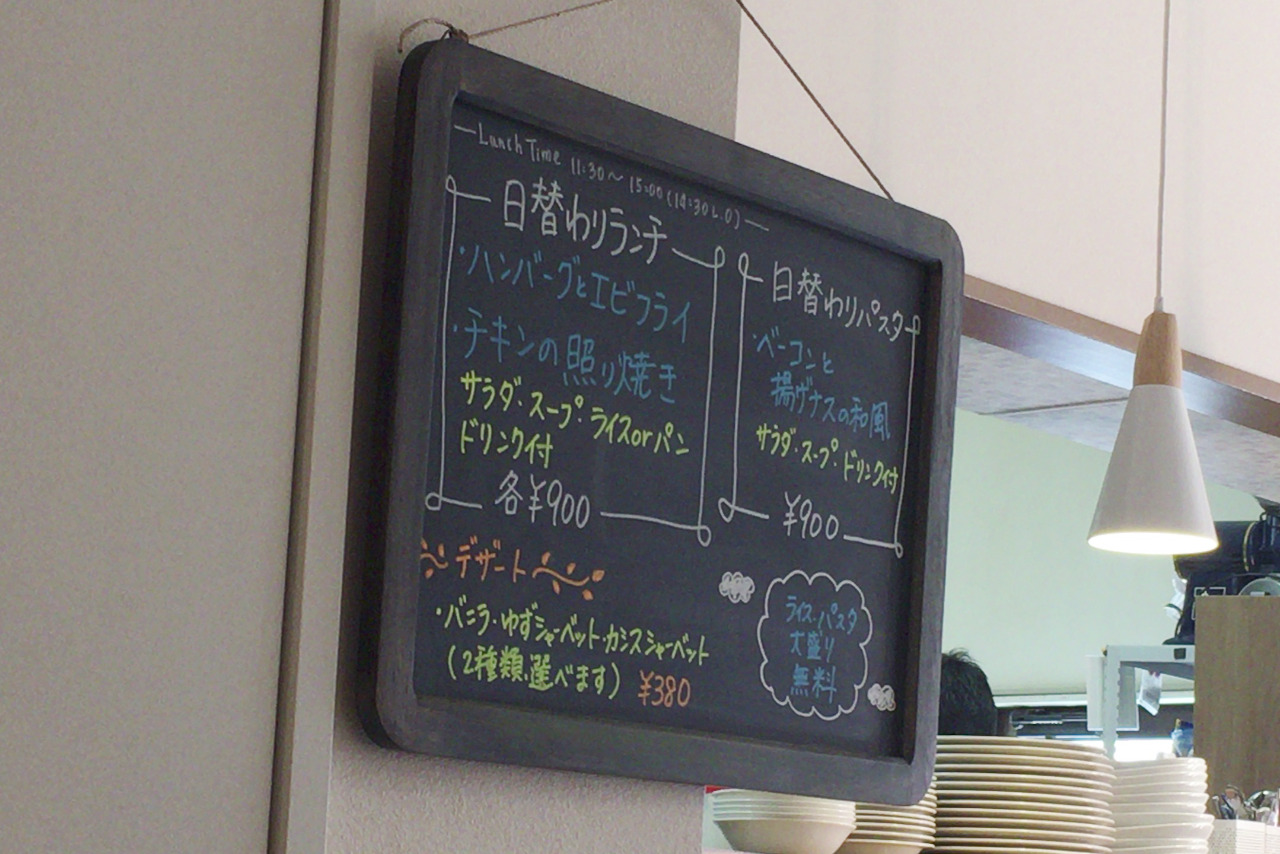 Lunch Time 11:30～15:00(14:30 L.O)
日替わりランチ
・ハンバーグとエビフライ
・チキンの照り焼き
サラダ・スープ・ライスorパン
ドリンク付
各¥900
日替わりパスタ
・ベーコンと
揚げナスの和風
サラダ・スープ・ドリンク付
¥900
デザート
・バニラ・ゆずシャーベット・カシスシャーベット
(2種類選べます) ¥380
ライス・パスタ
大盛り
無料